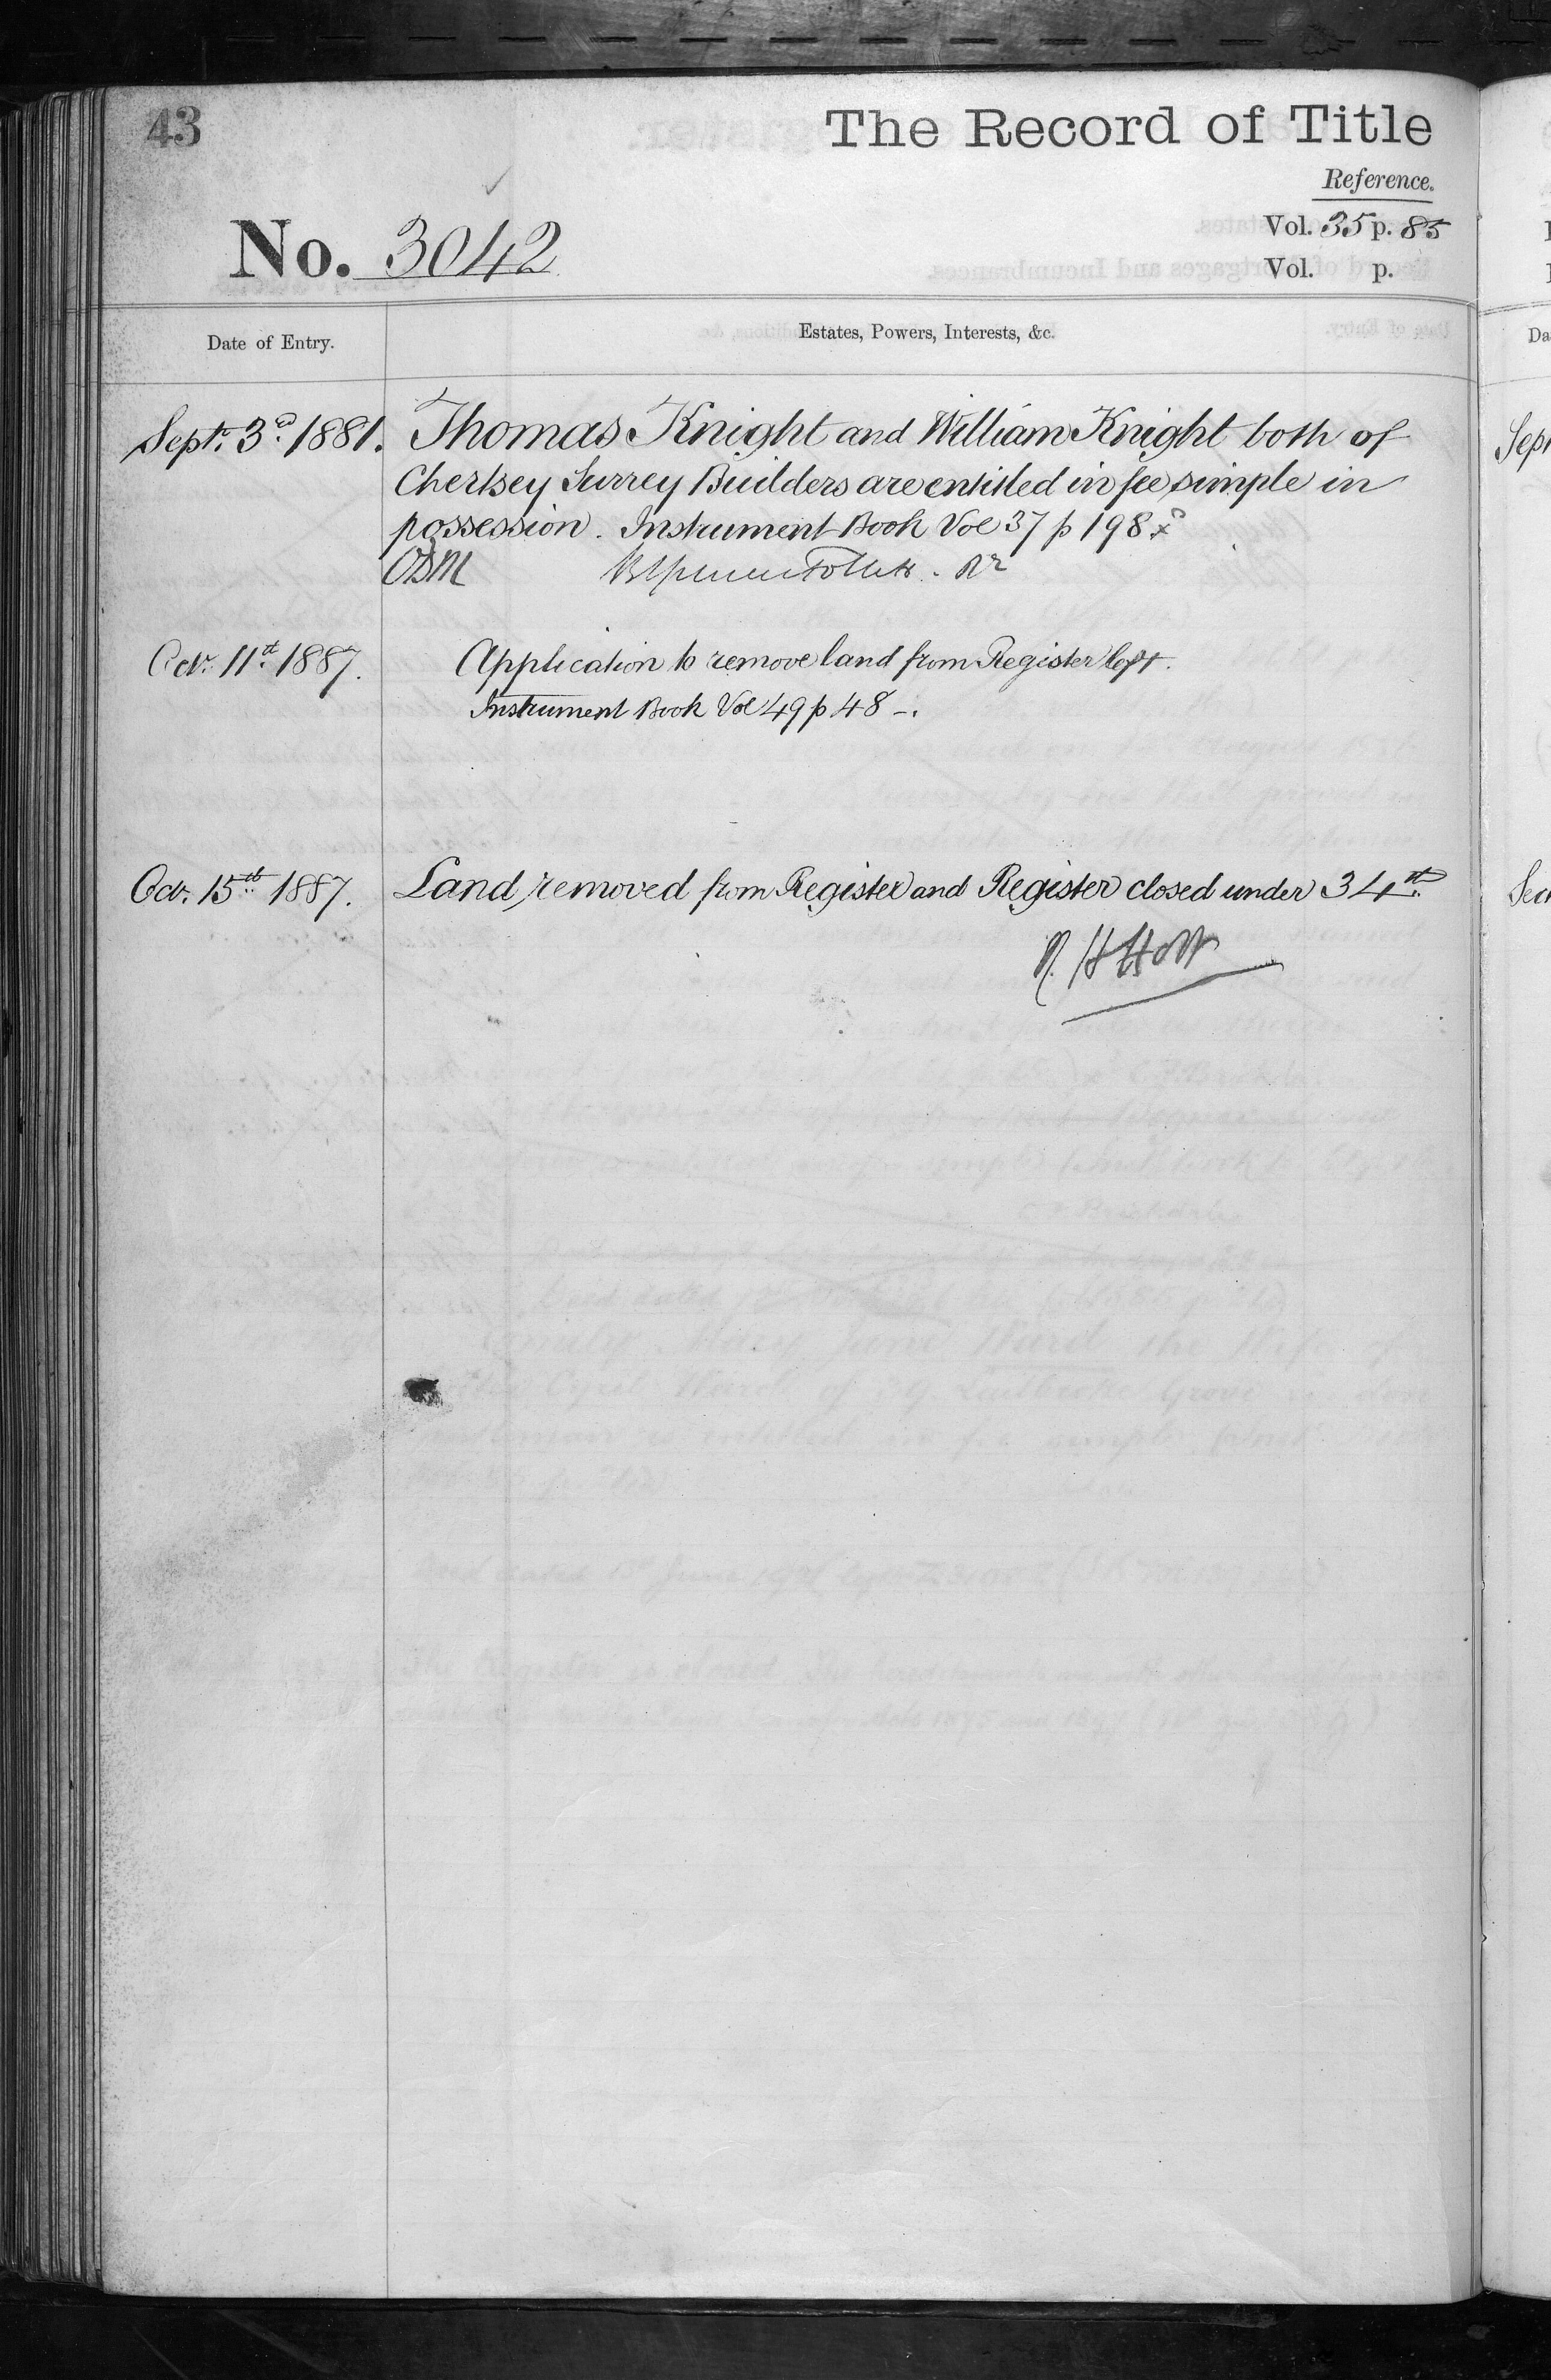 43
The Record of Title
Reference.
Vol. 35 p. 85
No. 3042
Vol. p.
Date of Entry.
Estates, Powers, Interests, &c.
Sept. 3d. 1881. Thomas Knight and William Knight both of
Chertsey Surrey Builders are entitled in fee simple in
possession. Instrument Book Vol 37 p 198
Oct. 11th 1887. Application to remove land from Register left.
Instrument Book Vol 49 p 48 -.
Oct. 15th 1887. Land removed from Register and Register closed under 34th.
R. H Holt